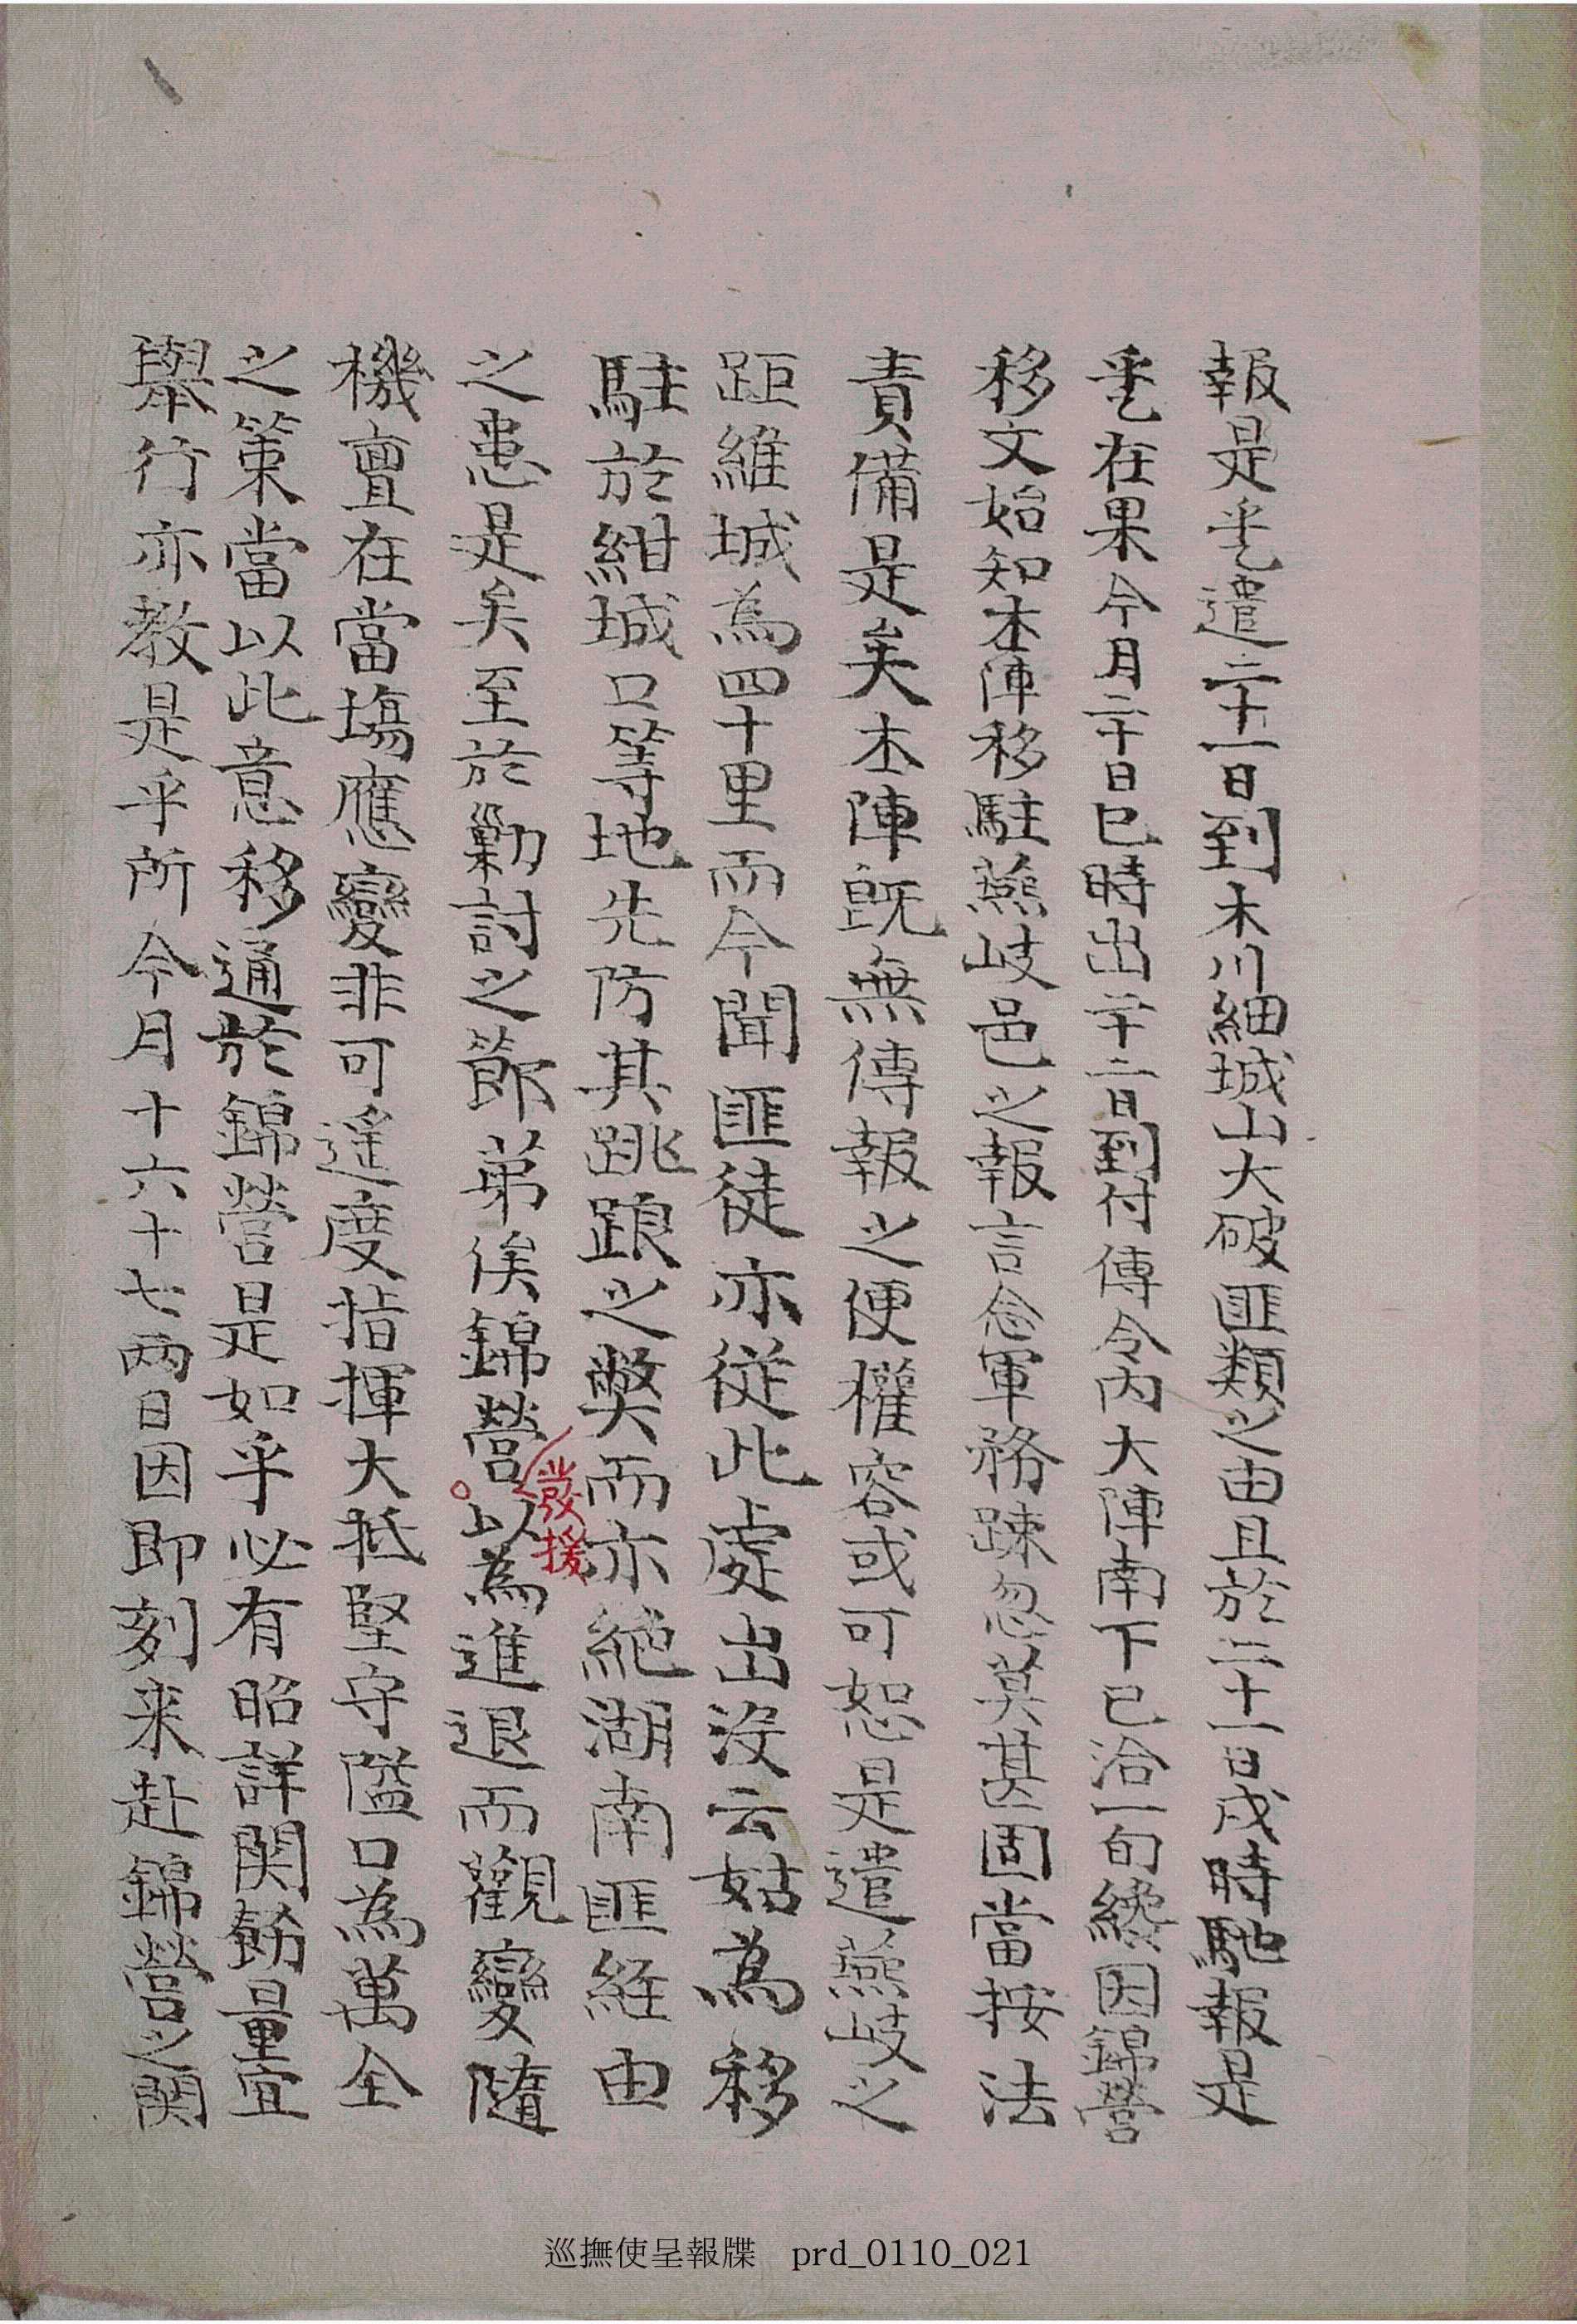 報是乎遣二十一日到木川細城山大破匪類之由且於二十一日戌時馳報是
乎乙在果今月二十日巳時出二十二日到付傳令內大陣南下已洽一旬纔因錦營
移文始知本陣移駐燕歧邑之報言念軍務踈忽莫甚固當按法
責備是矣本陣旣無傳報之便權容或可恕是遣燕歧之
距維城為四十里而今聞匪徒亦從此處出沒云姑為移
駐於紺城口等地先防其跳踉之獘而亦絶湖南匪経由
之患是矣至於勦討之節苐俟錦營發援以為進退而觀變隨
機亶在當塲應變非可遥度指揮大抵堅守隘口為萬全
之策當以此意移通於錦營是如乎必有昭詳関飭量宜
舉行亦教是乎所今月十六十七两日因即刻来赴錦營之関
巡撫使呈報牒 prd_0110_021